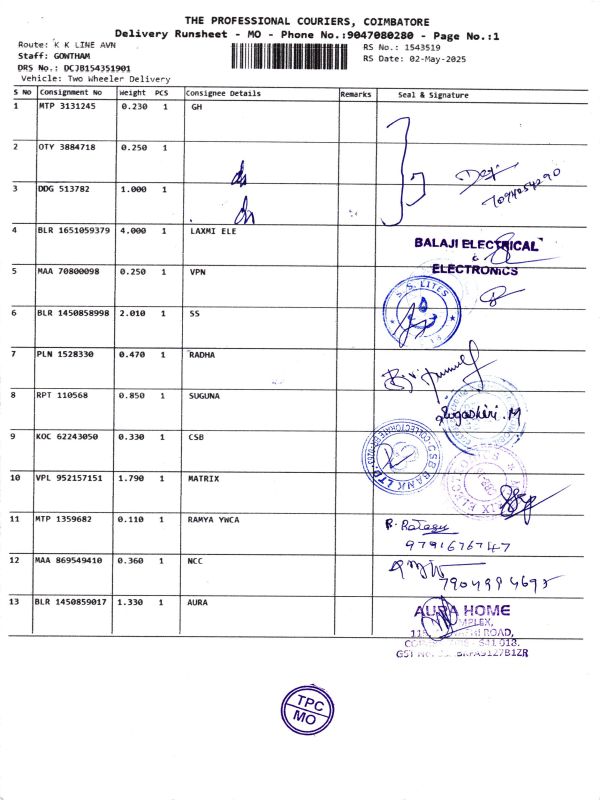 THE PROFESSIONAL COURIERS, COIMBATORE
Delivery Runsheet - MO - Phone No.:9047080280 - Page No.:1
Route: K K LINE AVN
RS No.: 1543519
Staff: GOWTHAM
RS Date: 02-May-2025
DRS No.: DCJB154351901
Vehicle: Two Wheeler Delivery
S No Consignment No Weight PCS Consignee Details Remarks Seal & Signature
1 MTP 3131245 0.230 1 GH
2 OTY 3884718 0.250 1
3 DDG 513782 1.000 1
4 BLR 1651059379 4.000 1 LAXMI ELE
BALAJI ELECTRICAL
&
ELECTRONICS
5 MAA 70800098 0.250 1 VPN
S.S. LITES
6 BLR 1450858998 2.010 1 SS
7 PLN 1528330 0.470 1 RADHA
8 RPT 110568 0.850 1 SUGUNA
9 KOC 62243050 0.330 1 CSB
CSB BANK LTD
10 VPL 952157151 1.790 1 MATRIX
11 MTP 1359682 0.110 1 RAMYA YWCA
9791676747
12 MAA 869549410 0.360 1 NCC
7904994695
13 BLR 1450859017 1.330 1 AURA
AURA HOME
ROAD,
TPC
MO